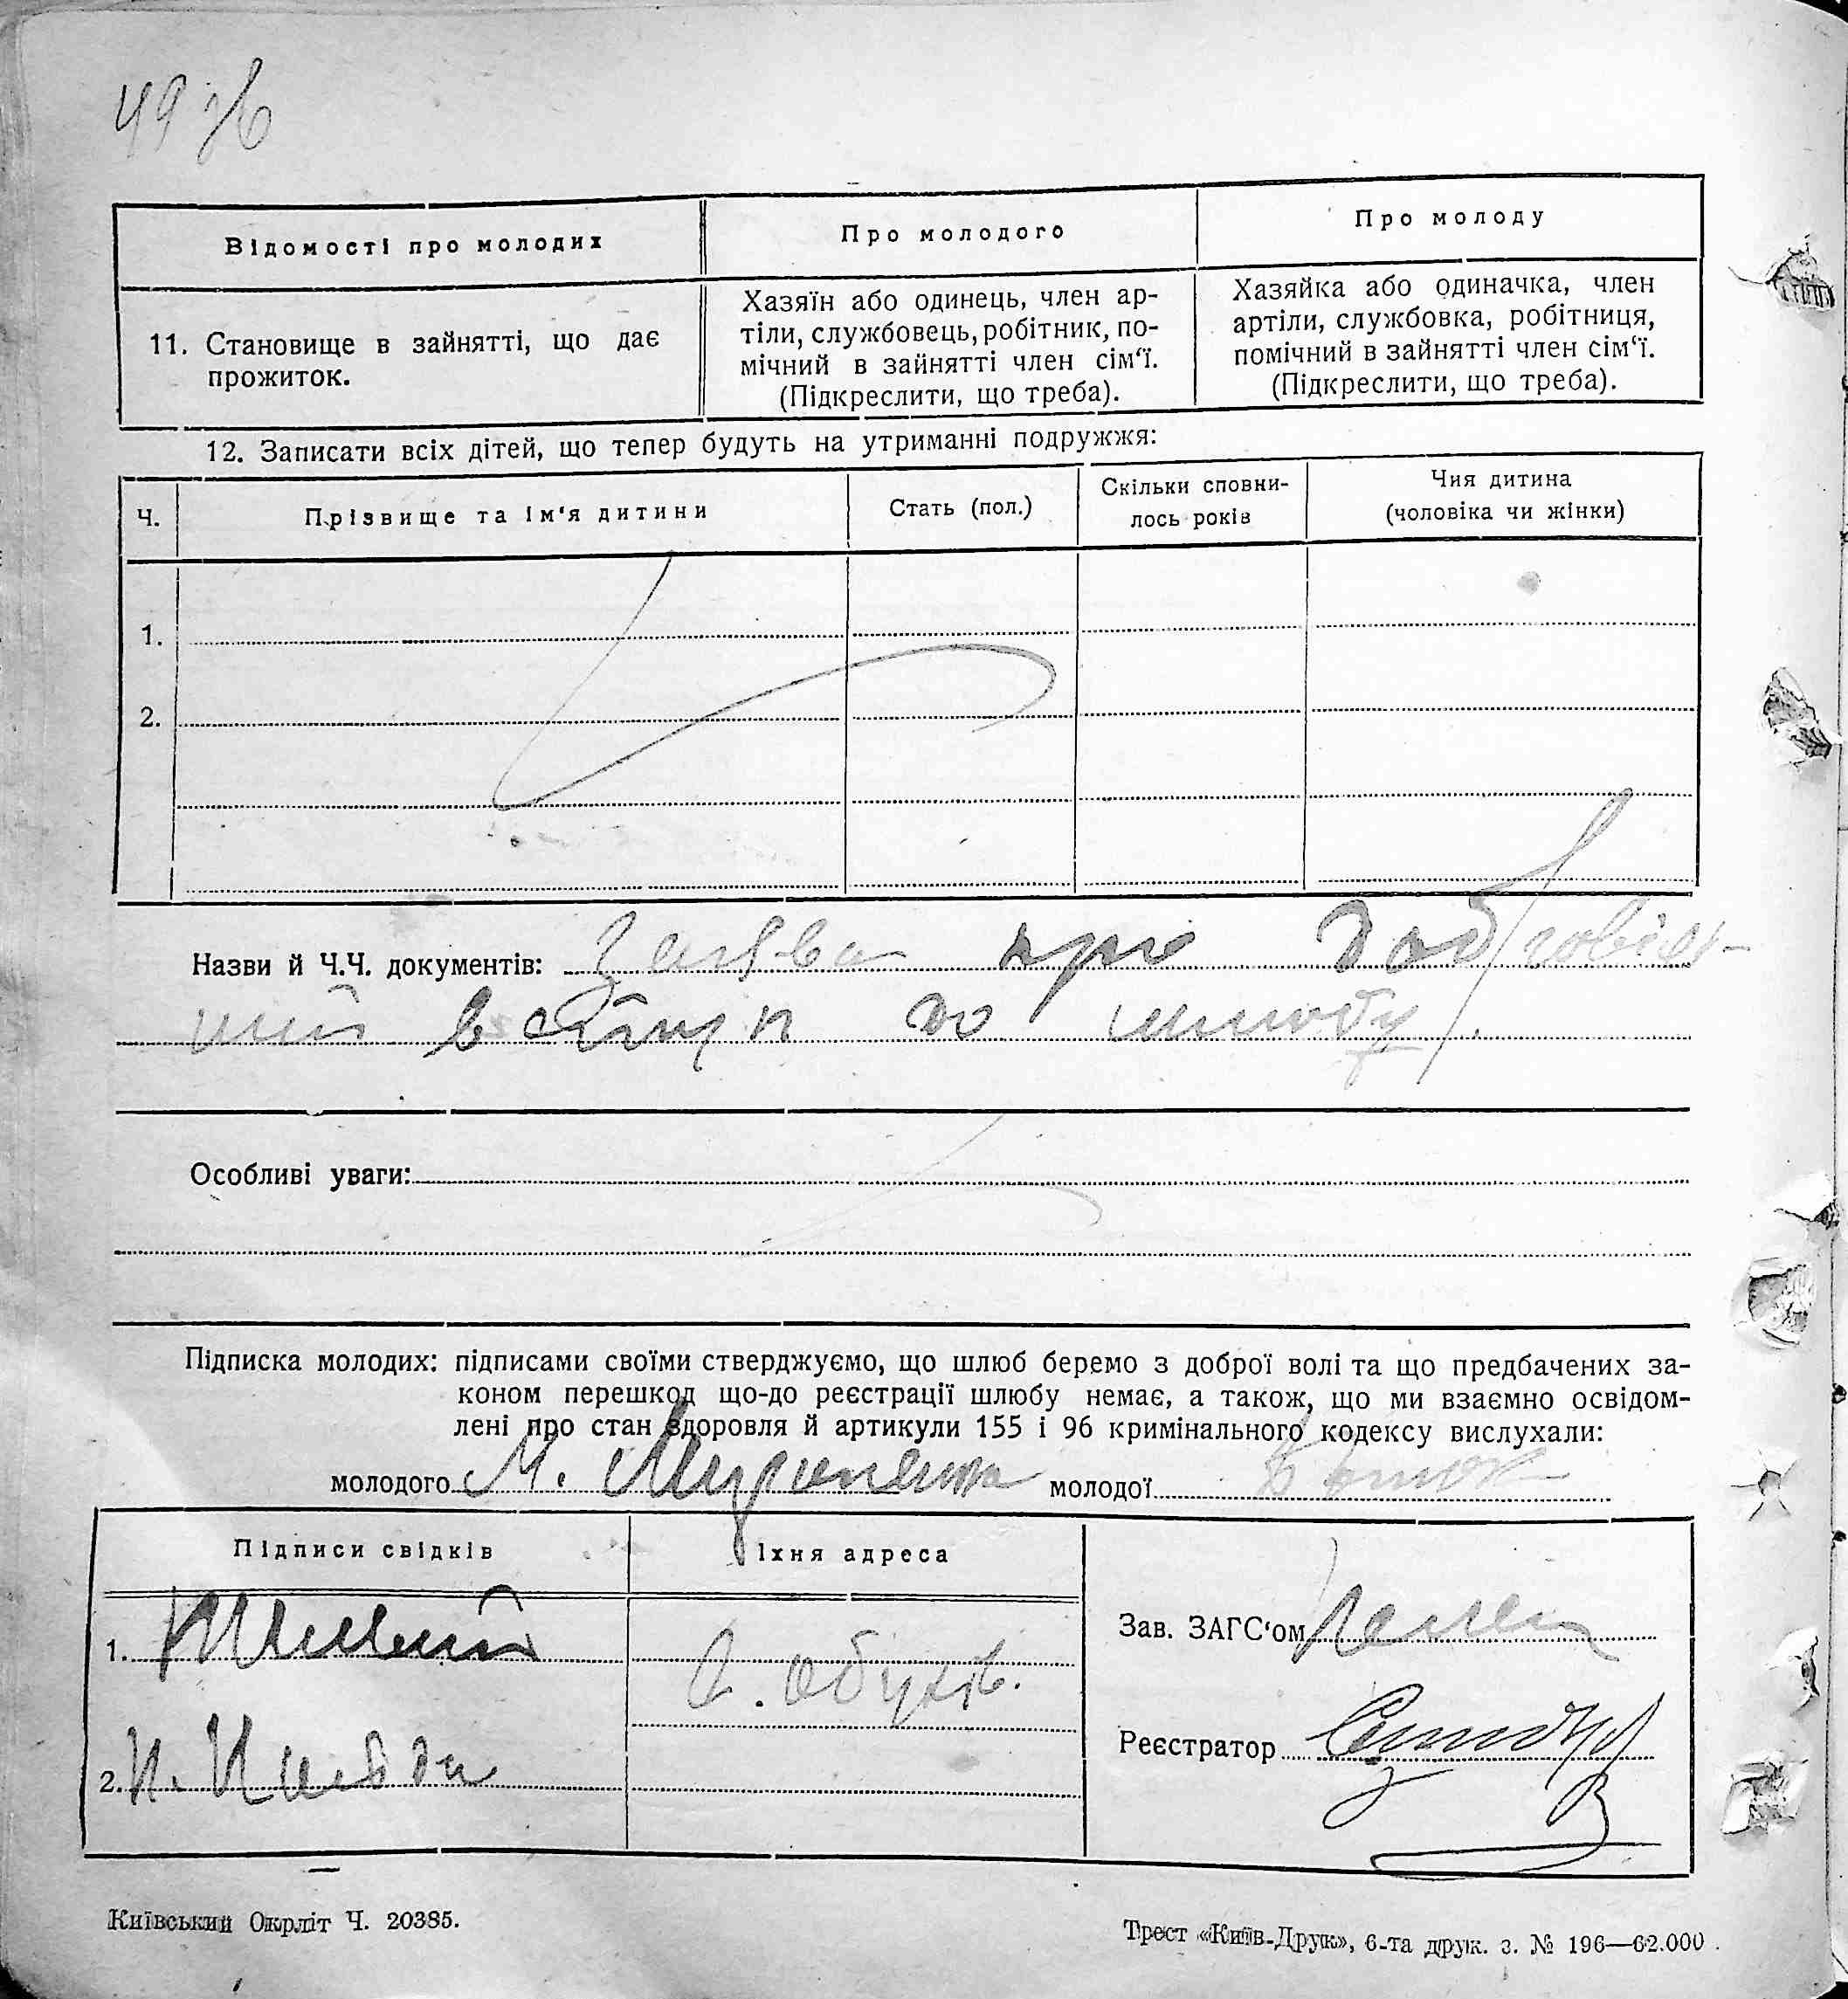 49 зв
Відомості про молодих
Про молодого
Про молоду
11. Становище в зайнятті, що дає
прожиток.
Хазяїн або одинець, член ар-
тіли, службовець, робітник, по-
мічний в зайнятті член сім‘ї.
(Підкреслити, що треба).
Хазяйка або одиначка, член
артіли, службовка, робітниця,
помічний в зайнятті член сім‘ї.
(Підкреслити, що треба).
12. Записати всіх дітей, що тепер будуть на утриманні подружжя:
Ч.
Прізвище та ім'я дитини
Стать (пол.)
Скільки сповни-
лось років
Чия дитина
(чоловіка чи жінки)
1.
2.
Назви й Ч.Ч. документів: Заява про добровіль-
ний вступ до шлюбу.
Особливі уваги:
Підписка молодих: підписами своїми стверджуємо, що шлюб беремо з доброї волі та що предбачених за-
коном перешкод що-до реєстрації шлюбу немає, а також, що ми взаємно освідом-
лені про стан здоровля й артикули 155 і 96 кримінального кодексу вислухали:
молодого М. молодої
Підписи свідків
Їхня адреса
1.
С. Обухів.
2.
Зав. ЗАГС‘ом
Реєстратор
Київський Окрліт Ч. 20385.
Трест «Київ-Друк», 6-та друк. з. № 196—62.000.